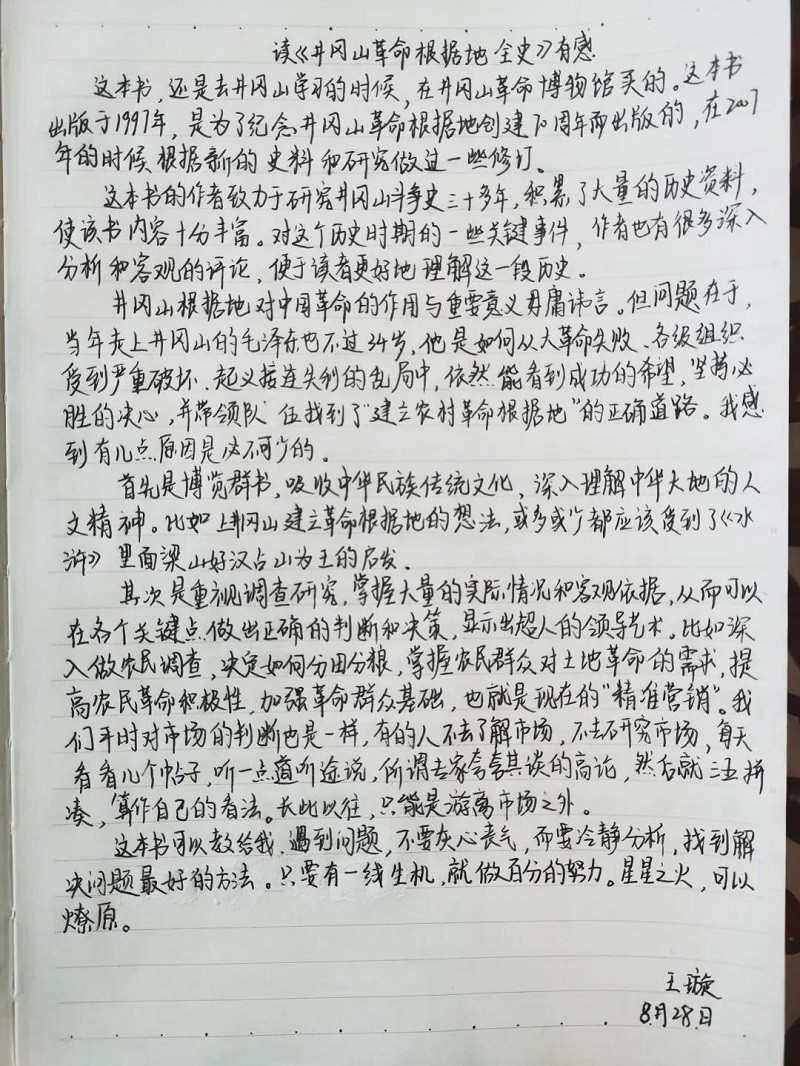 读《井冈山革命根据地全史》有感
这本书，还是去井冈山学习的时候，在井冈山革命博物馆买的。这本书
出版于1997年，是为了纪念井冈山革命根据地创建70周年而出版的，在2007
年的时候根据新的史料和研究做过一些修订。
这本书的作者致力于研究井冈山斗争史三十多年，积累了大量的历史资料，
使该书内容十分丰富。对这个历史时期的一些关键事件，作者也有很多深入
分析和客观的评论，便于读者更好地理解这一段历史。
井冈山根据地对中国革命的作用与重要意义毋庸讳言。但问题在于，
当年走上井冈山的毛泽东也不过34岁，他是如何从大革命失败、各级组织
受到严重破坏、起义接连失利的乱局中，依然能看到成功的希望，坚持必
胜的决心，并带领队伍找到了“建立农村革命根据地”的正确道路。我感
到有几点原因是必不可少的。
首先是博览群书，吸收中华民族传统文化，深入理解中华大地的人
文精神。比如上井冈山建立革命根据地的想法，或多或少都应该受到了《水
浒》里面梁山好汉占山为王的启发。
其次是重视调查研究，掌握大量的实际情况和客观依据，从而可以
在各个关键点做出正确的判断和决策，显示出超人的领导艺术。比如深
入做农民调查，决定如何分田分粮，掌握农民群众对土地革命的需求，提
高农民革命积极性，加强革命群众基础，也就是现在的“精准营销”。我
们平时对市场的判断也是一样，有的人不去了解市场，不去研究市场，每天
看看几个帖子，听一点道听途说，所谓专家夸夸其谈的高论，然后就三五拼
凑，算作自己的看法。长此以往，只能是游离市场之外。
这本书可以教给我，遇到问题，不要灰心丧气，而要冷静分析，找到解
决问题最好的方法。只要有一线生机，就做百分的努力。星星之火，可以
燎原。
王璇
8月28日